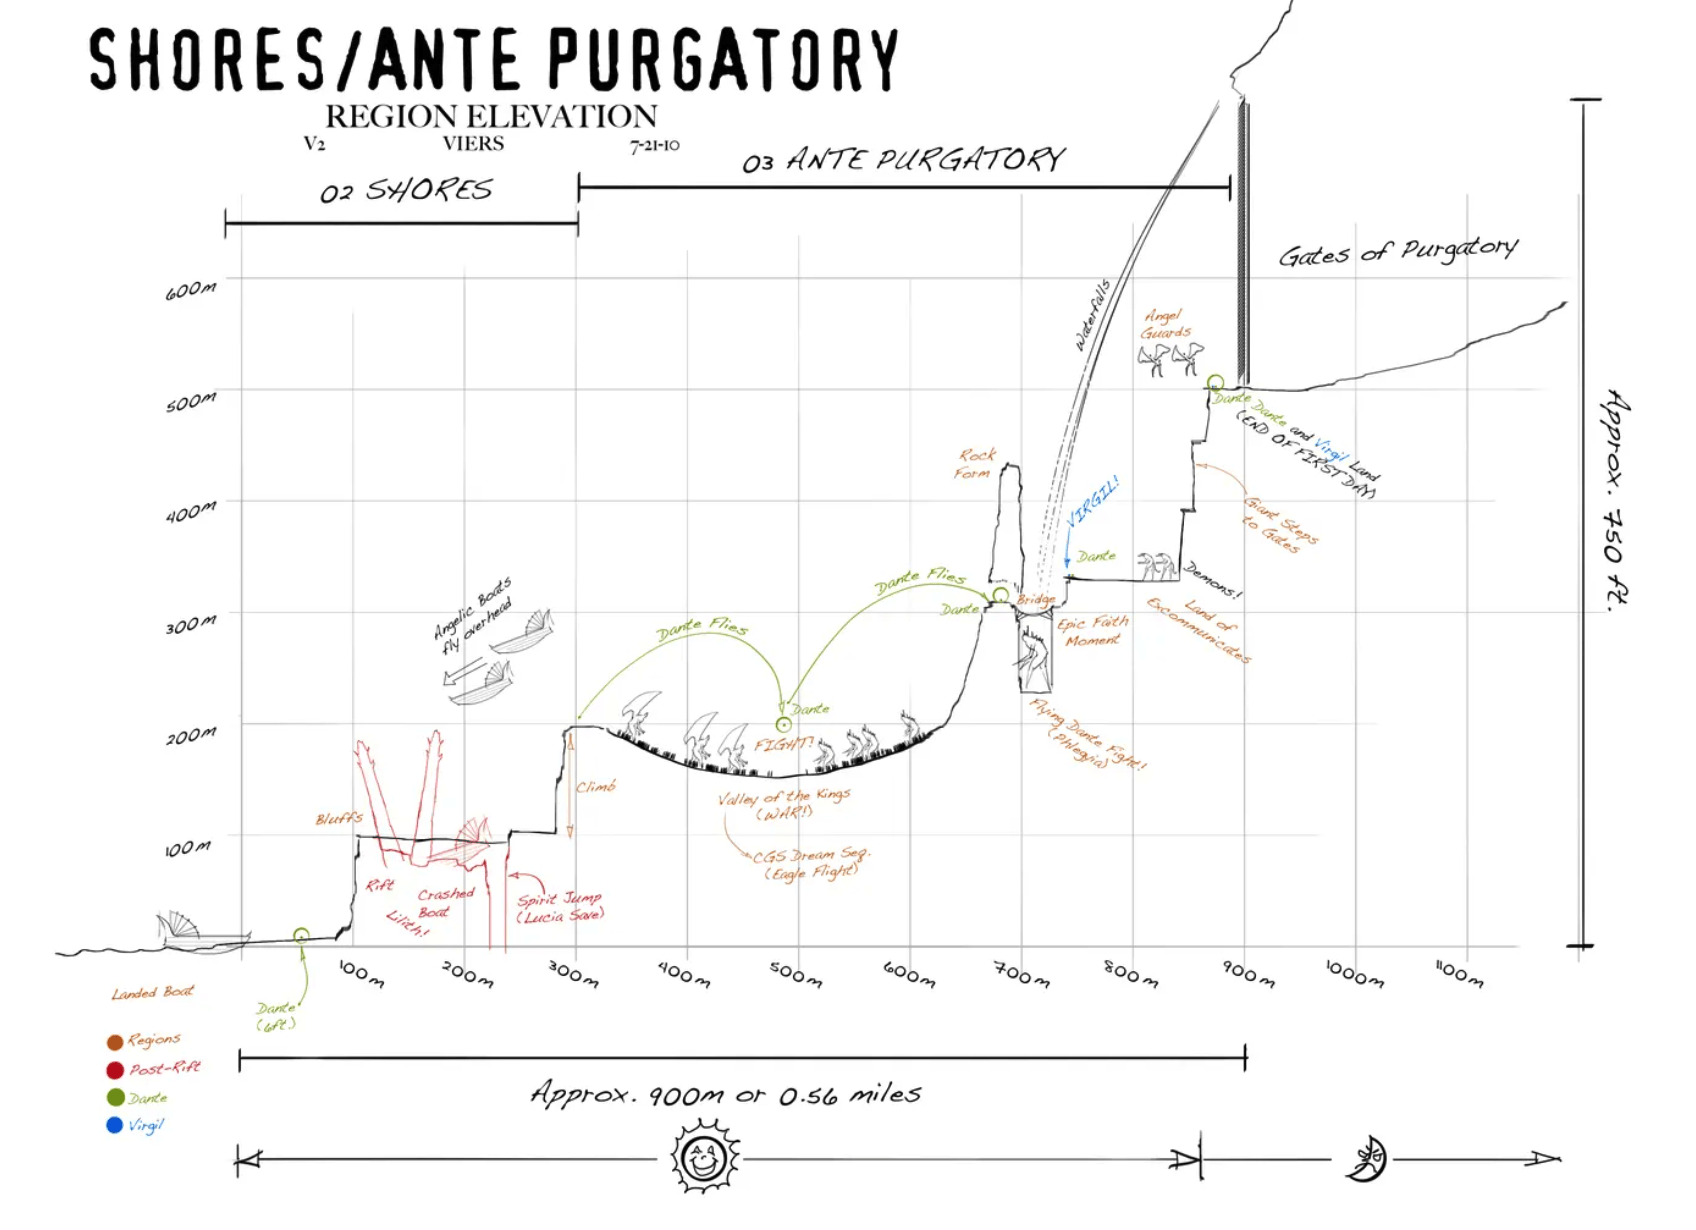 SHORES/ANTE PURGATORY
REGION ELEVATION
V2 VIERS 7-21-10
02 SHORES
03 ANTE PURGATORY
Gates of Purgatory
600m
500m
400m
300m
200m
100m
Waterfalls
Angel
Guards
Dante
Dante and Virgil Land
(END OF FIRST DAY)
Rock
Form
VIRGIL!
Giant Steps
to Gates
Dante
Demons!
Land of
Excommunicates
Dante Flies
Dante
Bridge
Epic Faith
Moment
Flying Dante Fight!
(Phlegyia)
Angelic Boats
fly overhead
Dante Flies
Dante
FIGHT!
Valley of the Kings
(WAR!)
CGS Dream Seq.
(Eagle Flight)
Climb
Bluffs
Rift
Lilith!
Crashed
Boat
Spirit Jump
(Lucia Save)
Approx. 750 ft.
100m 200m 300m 400m 500m 600m 700m 800m 900m 1000m 1100m
Landed Boat
Dante
(6ft)
Regions
Post-Rift
Dante
Virgil
Approx. 900m or 0.56 miles